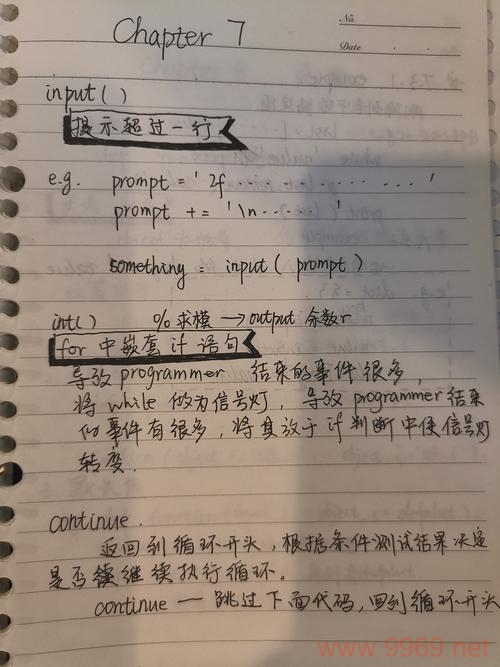 Chapter 7
No.
Date
input()
提示超过一行
e.g. prompt = ' If ........ '
prompt += '\n..... '
something = input(prompt)
int() % 求模 → output 余数r
for 中嵌套 if 语句
导致 programmer 结束的事件很多,
将 while 做为信号灯, 导致 programmer 结束
的事件有很多, 将其放于 if 判断中使信号灯
转变.
continue.
返回到循环开头, 根据条件测试结果决定
是否继续执行循环。
continue — 跳过下面代码, 回到循环开头
www.9969.net